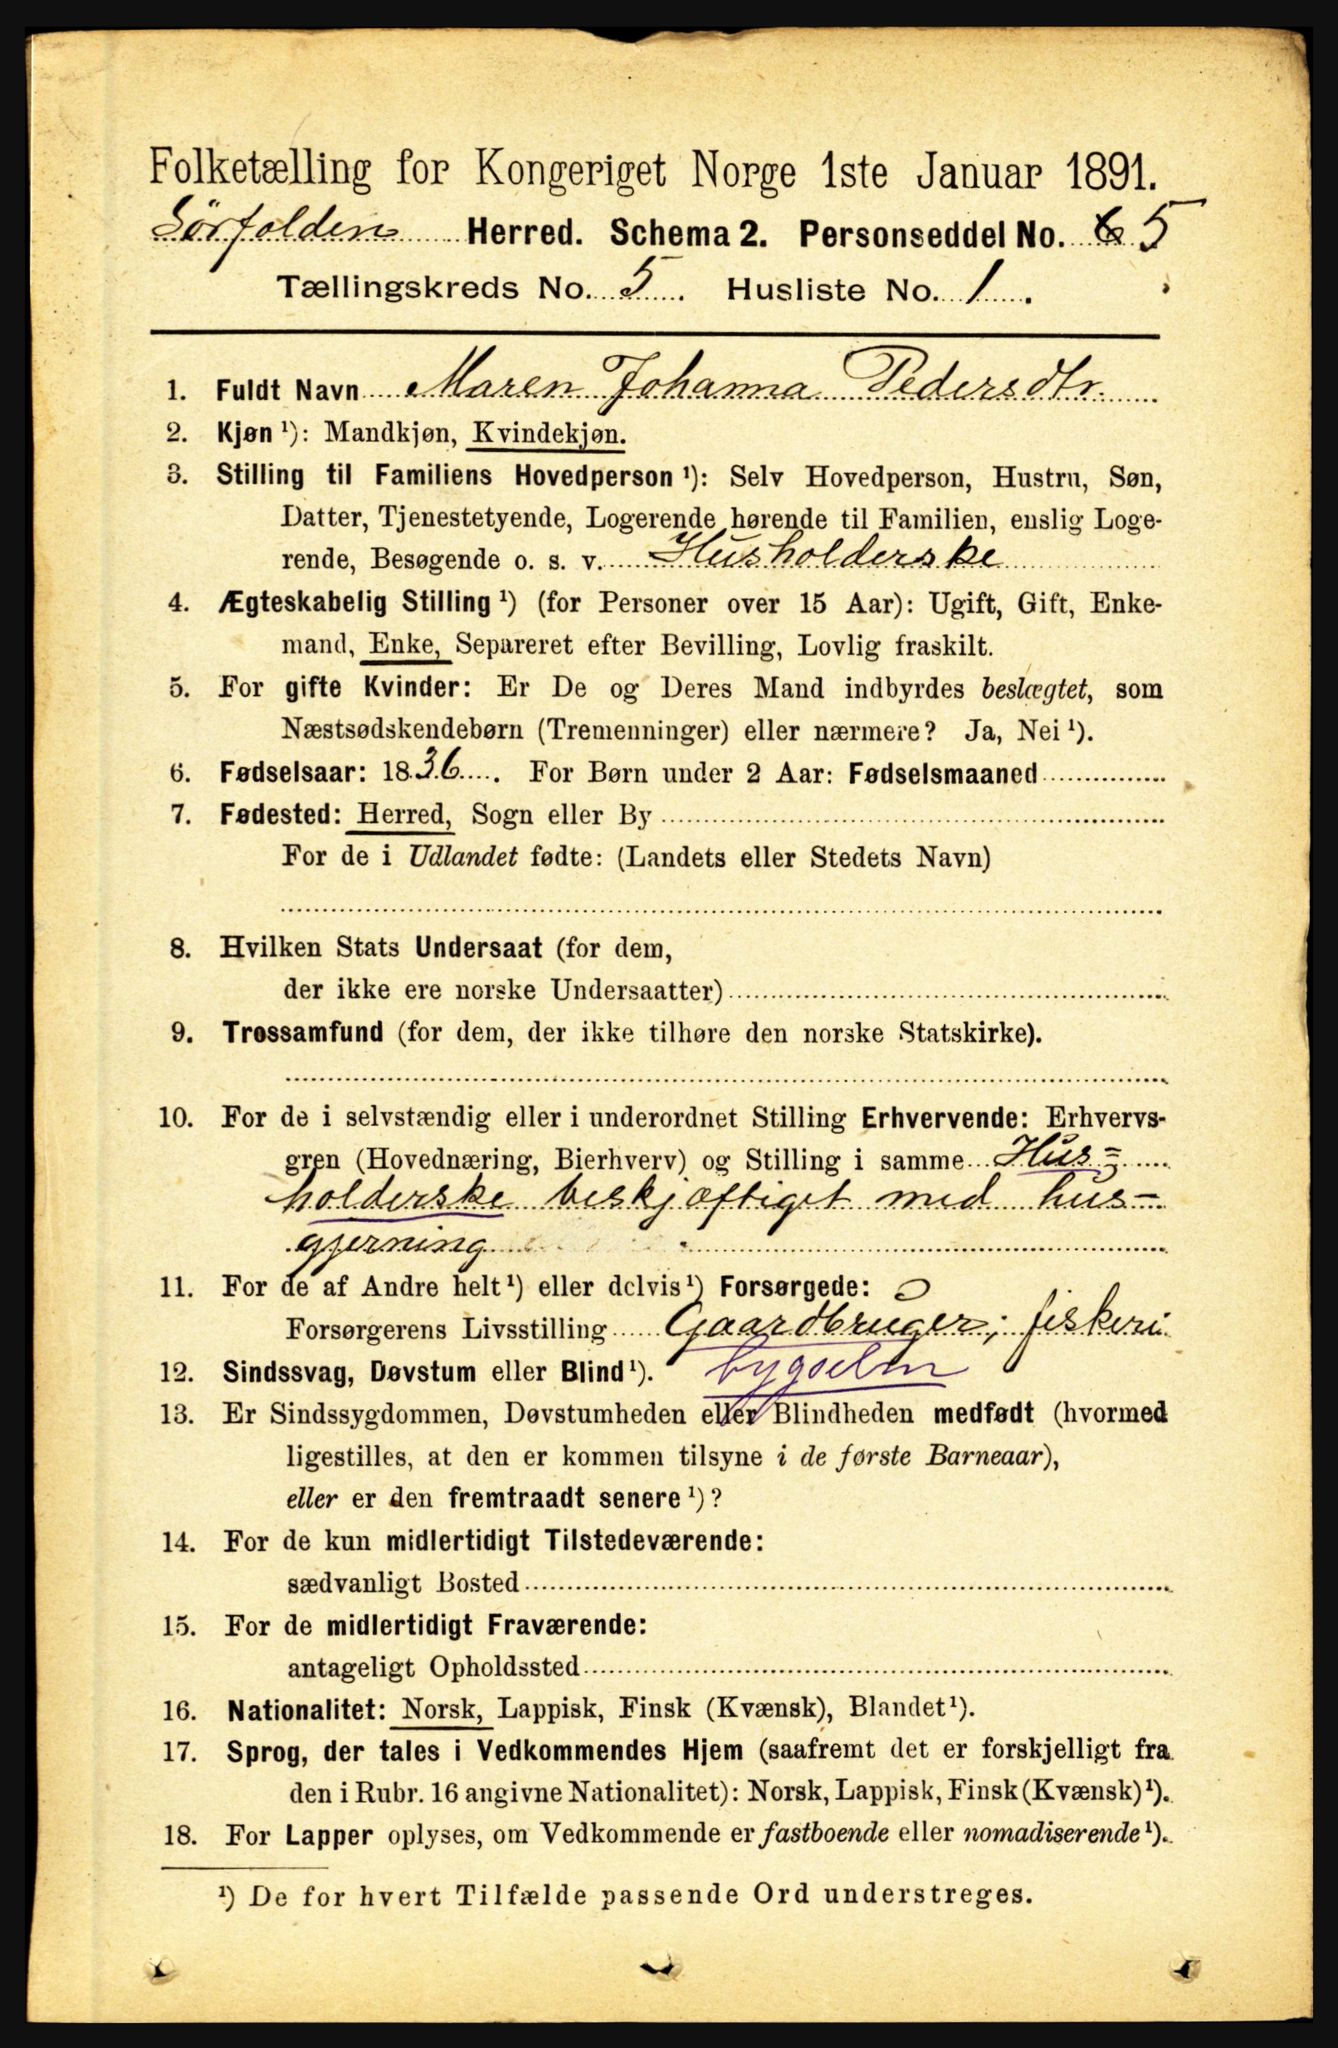 Folketælling for Kongeriget Norge 1ste Januar 1891.
Sørfolden Herred. Schema 2. Personseddel No. 6 5
Tællingskreds No. 5. Husliste No. 1.
1. Fuldt Navn Maren Johanna Pedersdtr.
2. Kjøn ¹): Mandkjøn, Kvindekjøn.
3. Stilling til Familiens Hovedperson ¹): Selv Hovedperson, Hustru, Søn,
Datter, Tjenestetyende, Logerende hørende til Familien, enslig Loge-
rende, Besøgende o. s. v. Husholderske
4. Ægteskabelig Stilling ¹) (for Personer over 15 Aar): Ugift, Gift, Enke-
mand, Enke, Separeret efter Bevilling, Lovlig fraskilt.
5. For gifte Kvinder: Er De og Deres Mand indbyrdes beslægtet, som
Næstsødskendebørn (Tremenninger) eller nærmere? Ja, Nei ¹).
6. Fødselsaar: 1836. For Børn under 2 Aar: Fødselsmaaned
7. Fødested: Herred, Sogn eller By
For de i Udlandet fødte: (Landets eller Stedets Navn)
8. Hvilken Stats Undersaat (for dem,
der ikke ere norske Undersaatter)
9. Trossamfund (for dem, der ikke tilhøre den norske Statskirke).
10. For de i selvstændig eller i underordnet Stilling Erhvervende: Erhvervs-
gren (Hovednæring, Bierhverv) og Stilling i samme Hus=
holderske beskjæftiget med hus-
gjerning
11. For de af Andre helt ¹) eller delvis ¹) Forsørgede:
Forsørgerens Livsstilling Gaardbruger; fiskeri
12. Sindssvag, Døvstum eller Blind ¹). bygselm
13. Er Sindssygdommen, Døvstumheden eller Blindheden medfødt (hvormed
ligestilles, at den er kommen tilsyne i de første Barneaar),
eller er den fremtraadt senere ¹)?
14. For de kun midlertidigt Tilstedeværende:
sædvanligt Bosted
15. For de midlertidigt Fraværende:
antageligt Opholdssted
16. Nationalitet: Norsk, Lappisk, Finsk (Kvænsk), Blandet ¹).
17. Sprog, der tales i Vedkommendes Hjem (saafremt det er forskjelligt fra
den i Rubr. 16 angivne Nationalitet): Norsk, Lappisk, Finsk (Kvænsk) ¹).
18. For Lapper oplyses, om Vedkommende er fastboende eller nomadiserende ¹).
¹) De for hvert Tilfælde passende Ord understreges.